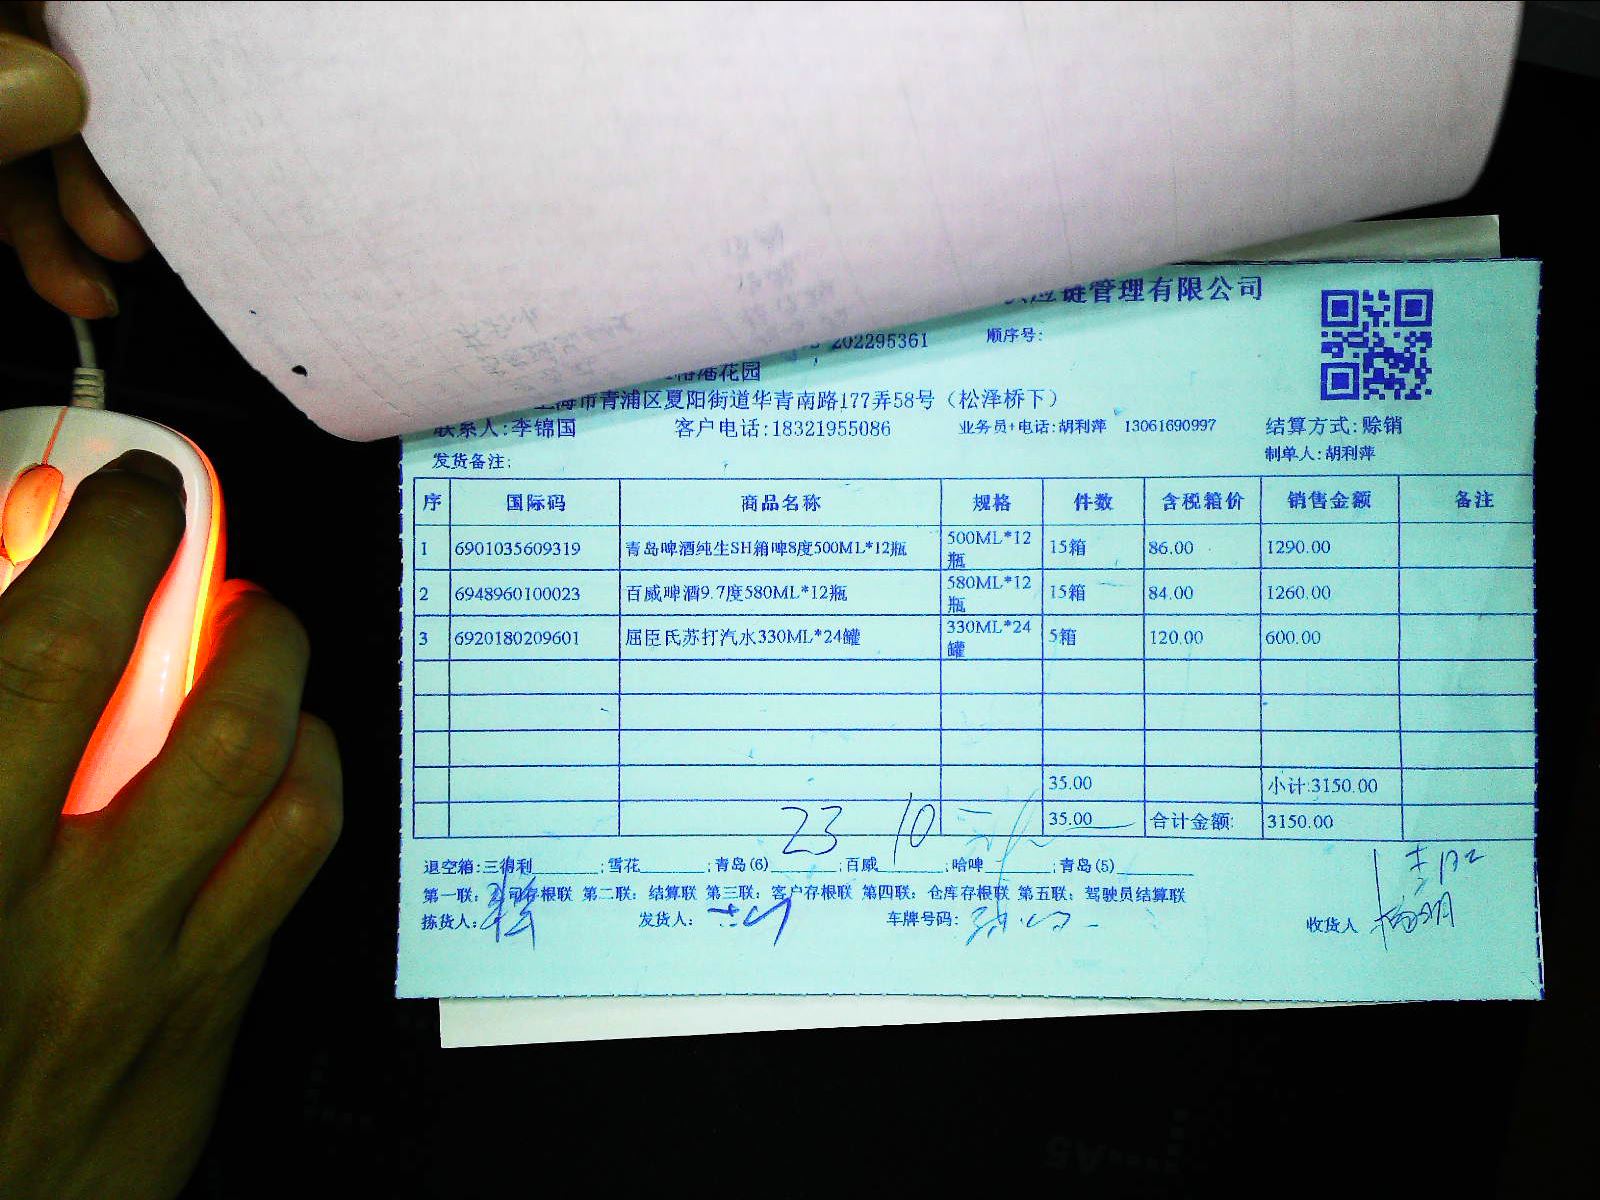 应链管理有限公司
202295361 顺序号:
花园
上海市青浦区夏阳街道华青南路177弄58号（松泽桥下）
联系人:李锦国 客户电话:18321955086 业务员+电话:胡利萍 13061690997 结算方式:赊销
发货备注: 制单人:胡利萍
序 国际码 商品名称 规格 件数 含税箱价 销售金额 备注
1 6901035609319 青岛啤酒纯生SH箱啤8度500ML*12瓶 500ML*12瓶 15箱 86.00 1290.00
2 6948960100023 百威啤酒9.7度580ML*12瓶 580ML*12瓶 15箱 84.00 1260.00
3 6920180209601 屈臣氏苏打汽水330ML*24罐 330ML*24罐 5箱 120.00 600.00
35.00 小计:3150.00
35.00 合计金额: 3150.00
23 10
退空箱:三得利 ;雪花 ;青岛(6) ;百威 ;哈啤 ;青岛(5)
第一联: 公司存根联 第二联: 结算联 第三联: 客户存根联 第四联: 仓库存根联 第五联: 驾驶员结算联
拣货人: 发货人: 车牌号码: 收货人